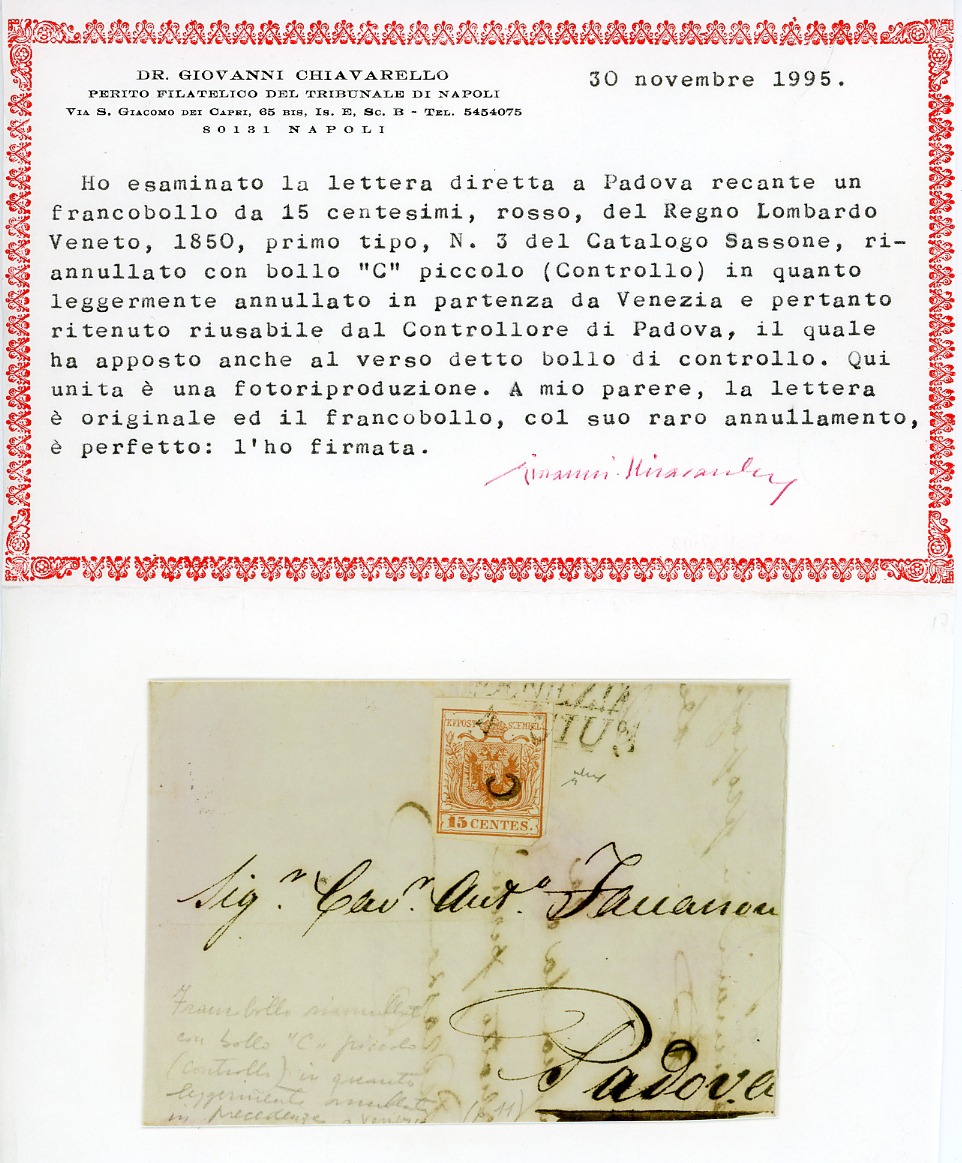 DR. GIOVANNI CHIAVARELLO
PERITO FILATELICO DEL TRIBUNALE DI NAPOLI
VIA S. GIACOMO DEI CAPRI, 65 BIS, IS. E, SC. B - TEL. 5454075
80131 NAPOLI
30 novembre 1995.
Ho esaminato la lettera diretta a Padova recante un
francobollo da 15 centesimi, rosso, del Regno Lombardo
Veneto, 1850, primo tipo, N. 3 del Catalogo Sassone, ri-
annullato con bollo "C" piccolo (Controllo) in quanto
leggermente annullato in partenza da Venezia e pertanto
ritenuto riusabile dal Controllore di Padova, il quale
ha apposto anche al verso detto bollo di controllo. Qui
unita è una fotoriproduzione. A mio parere, la lettera
è originale ed il francobollo, col suo raro annullamento,
è perfetto: l'ho firmata.
VENEZIA
GIUG
KKPOST STEMPEL
C
15 CENTES.
Sig.r Cav.r Ant.o
Padova
Francobollo riannullato
con bollo "C" piccolo
(controllo) in quanto
leggermente annullato
in precedenza a Venezia (P. 11)